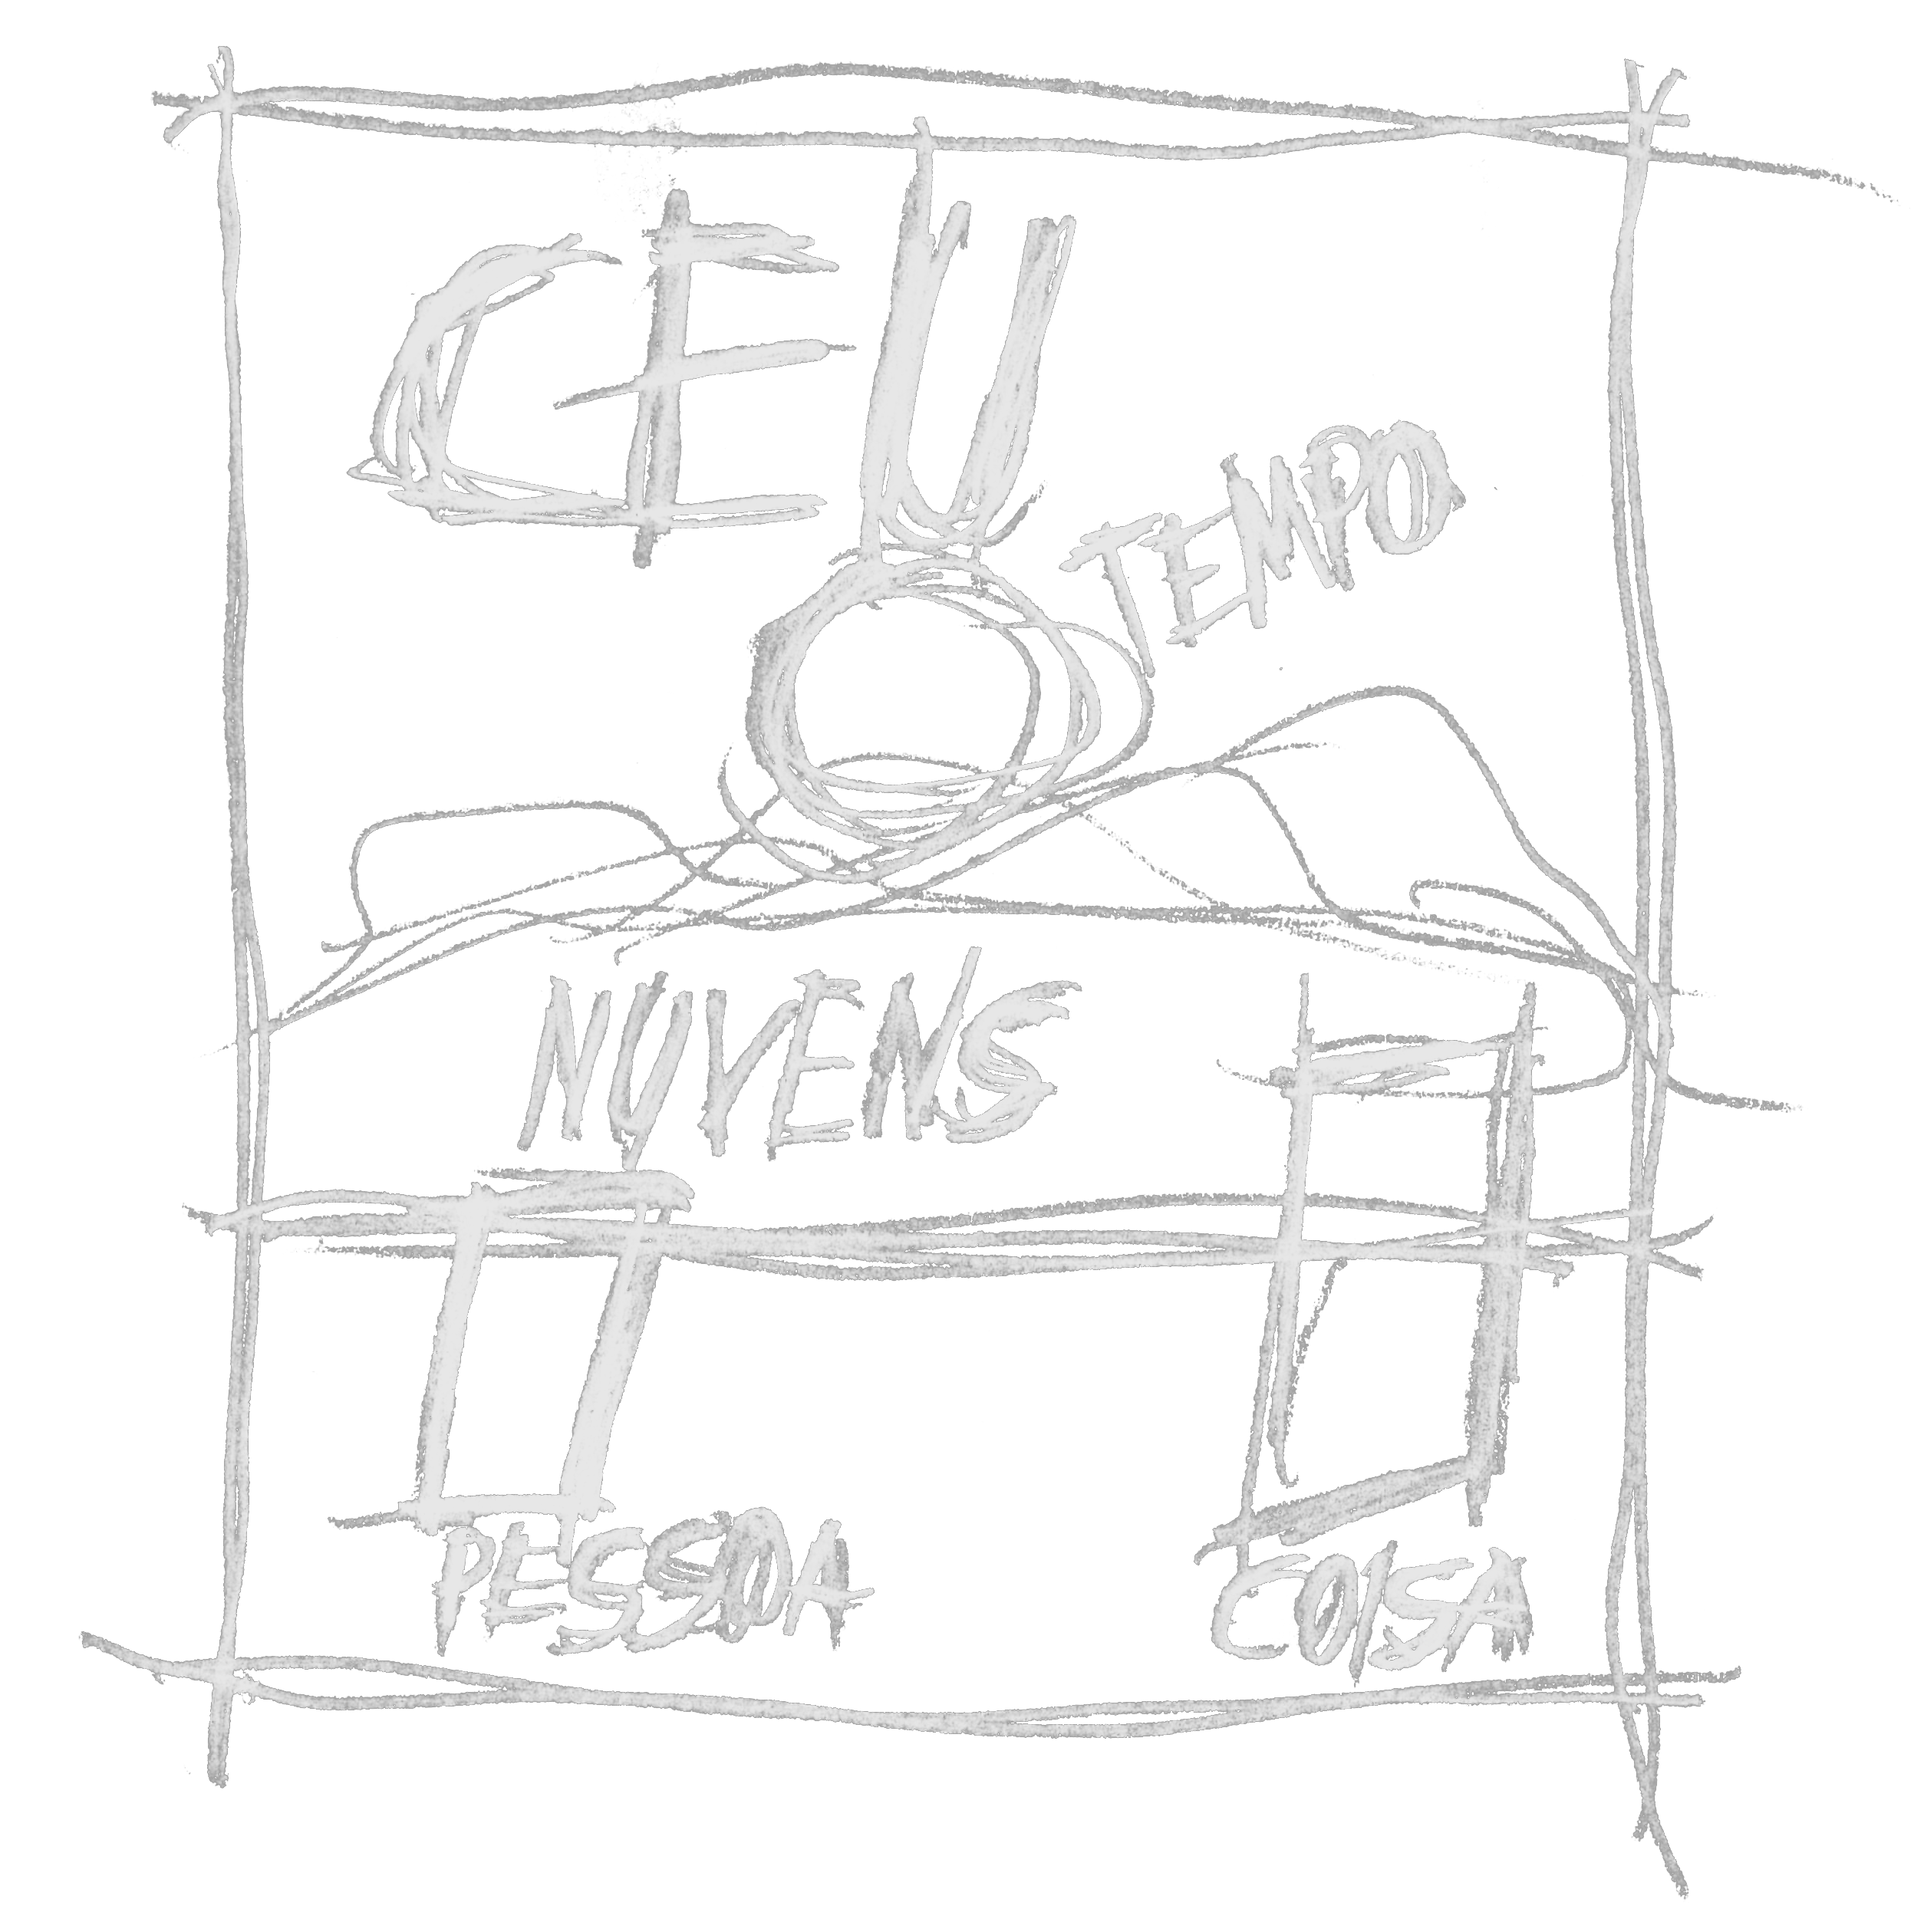 CEU
TEMPO
NUVENS
PESSOA
COISA